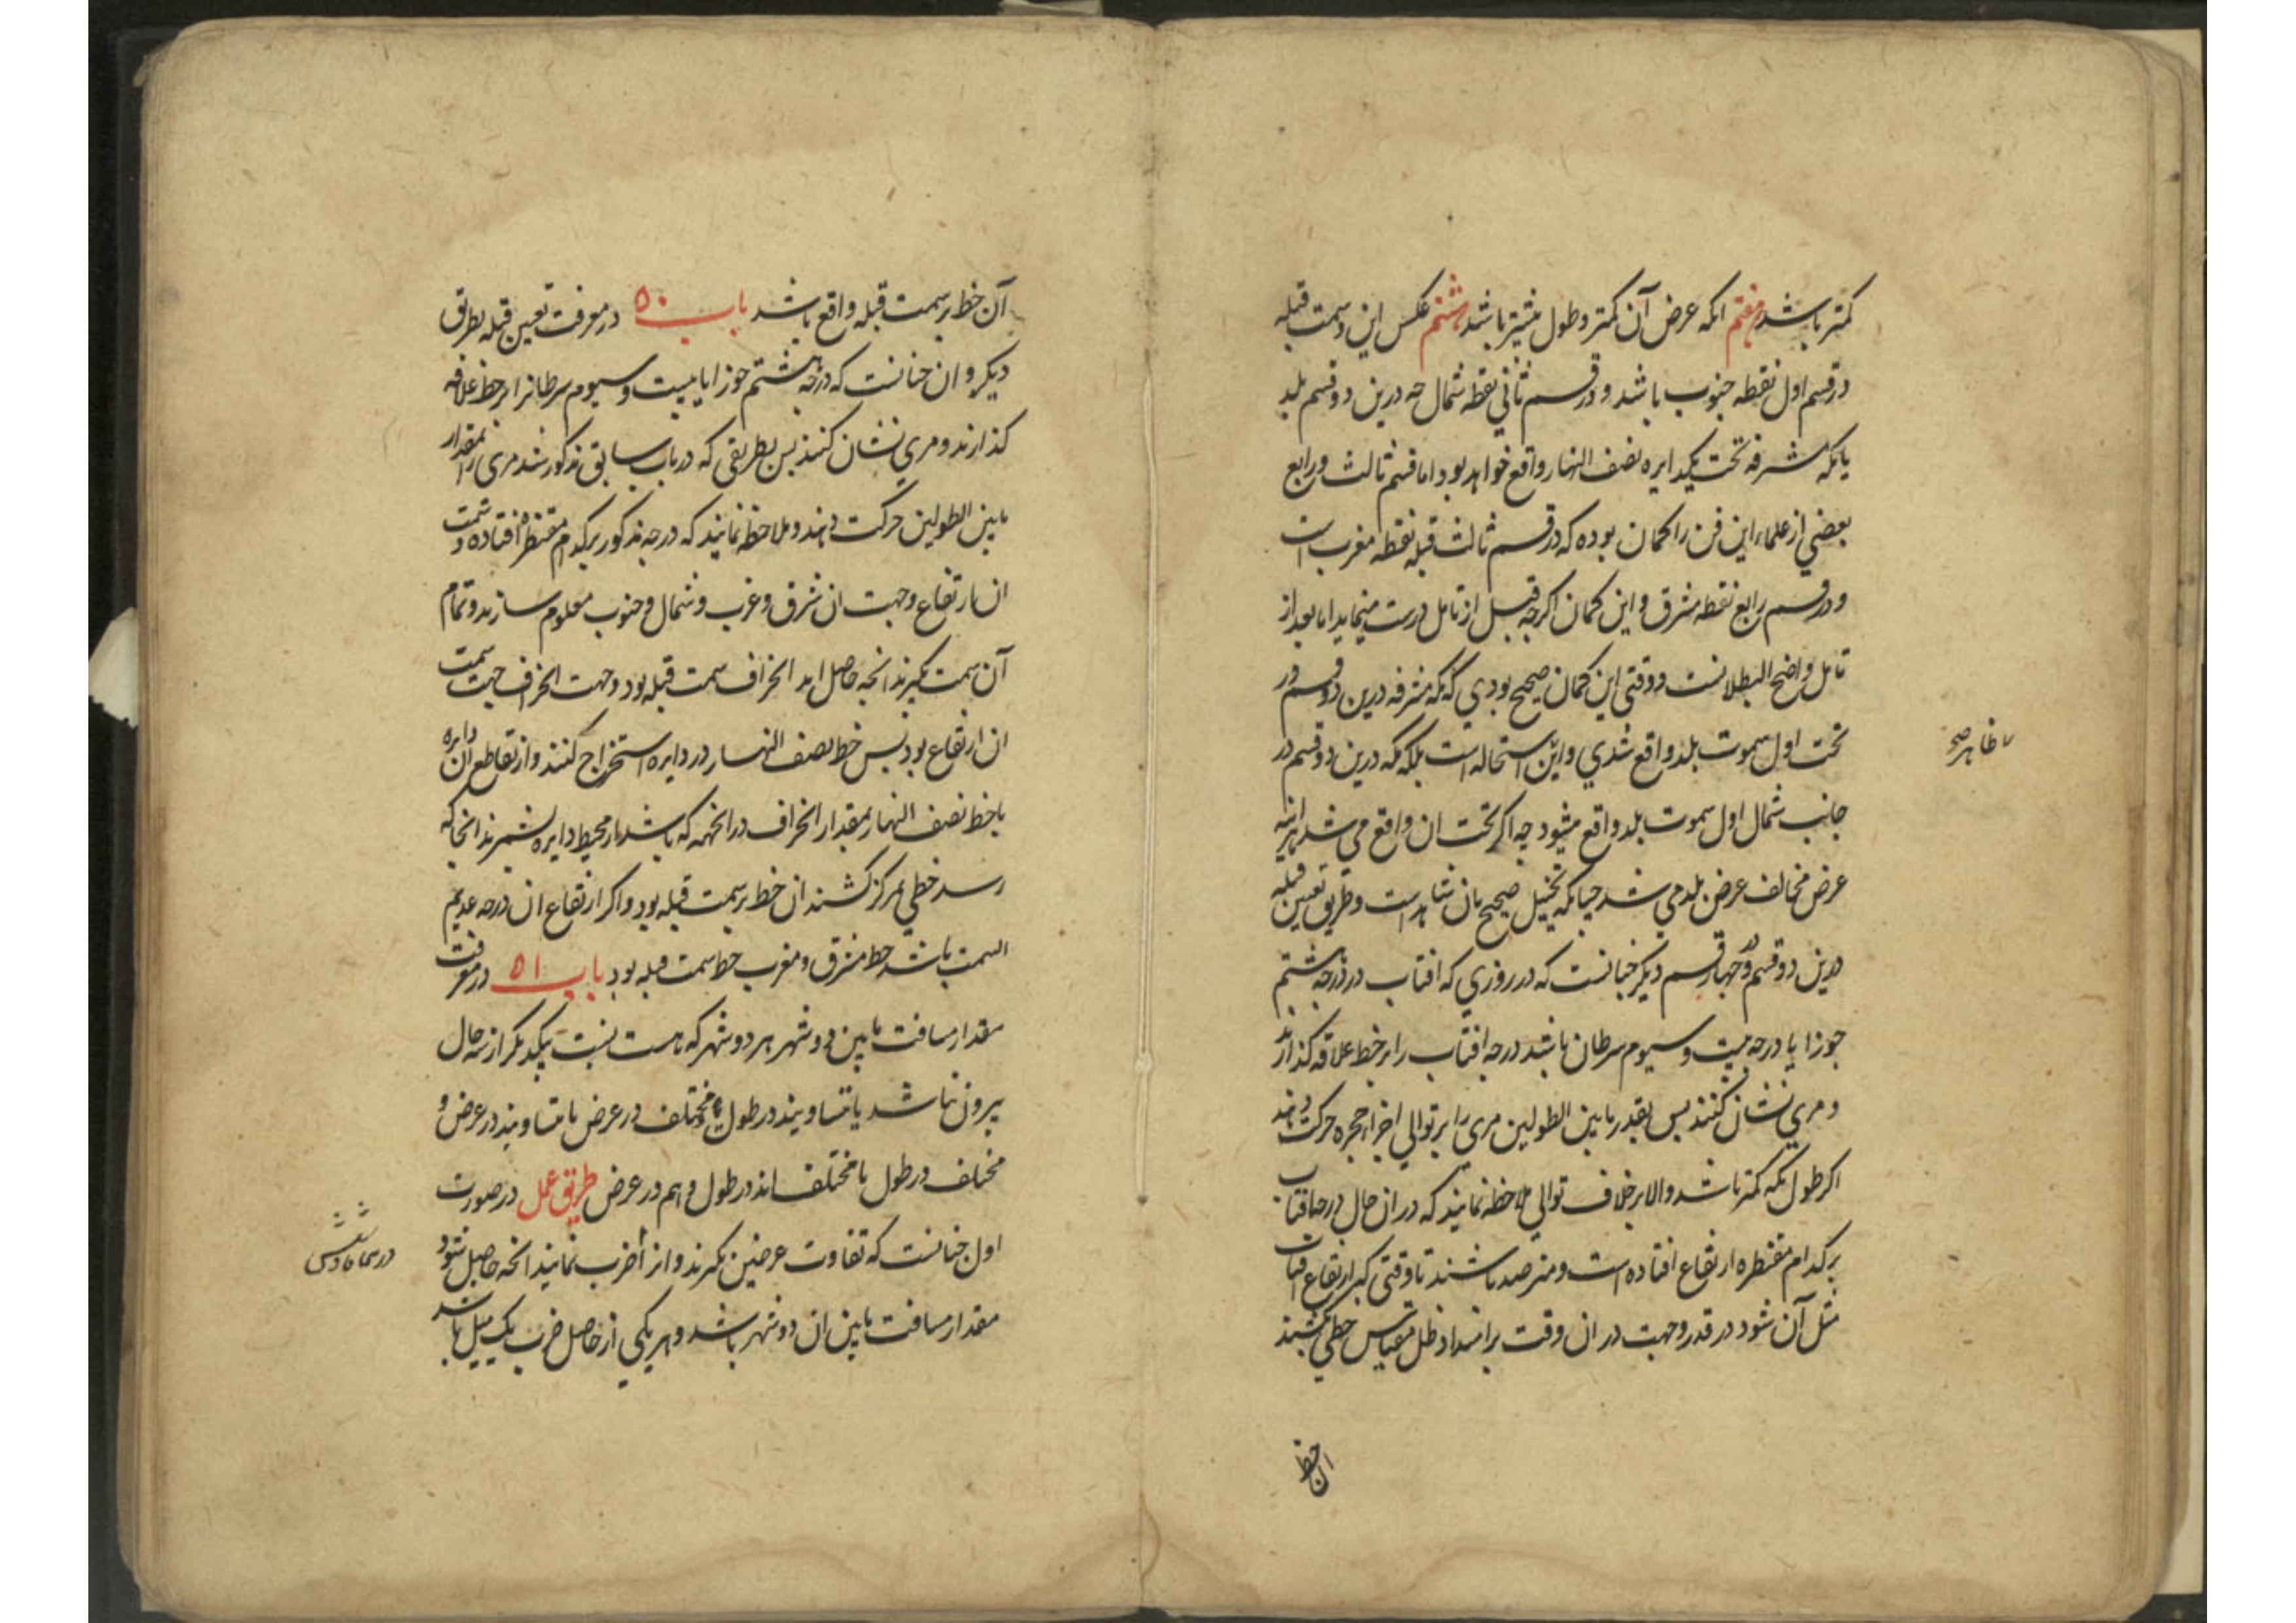 کمتر باشد هفتم انکه عرض آن کمتر و طول بیشتر باشد هشتم عکس این و سمت قبله
در قسم اول نقطه جنوب باشد و در قسم ثانی نقطه شمال چه درین دو قسم بلد
با مکه مشرفه تحت یکدایره نصف النهار واقع خواهد بود اما قسم ثالث و رابع
بعضی از علماء این فن را کمان بوده که در قسم ثالث قبله نقطه مغرب است
و در قسم رابع نقطه مشرق و این کمان اکرچه قبل از تامل درست مینماید اما بعد از
تامل واضح البطلانست و وقتی این کمان صحیح بودی که مکه مشرفه درین دو قسم در
تحت اول سموت بلد واقع شدی و این استحاله است بلکه مکه درین دو قسم در
جانب شمال اول سموت بلد واقع میشود چه اکر تحت ان واقع می شد هراینه
عرض مخالف عرض بلد می شد چنانکه تخیل صحیح بان شاهد است و طریق تعیین قبله
درین دو قسم و چهار قسم دیکر چنانست که در روزی که افتاب در درجه هشتم
جوزا یا درجه بیست و سیوم سرطان باشد درجه افتاب را بر خط علاقه کذارند
و مری نشان کنند پس بقدر ما بین الطولین مری را بر توالی اجزا حجره حرکت دهند
اکر طول مکه کمتر باشد والا بر خلاف توالی ملاحظه نمایند که در ان حال درجه افتاب
بر کدام مقنطره ارتفاع افتاده است و مترصد باشند تا وقتی که ارتفاع افتاب
مثل آن شود در قدر و جهت در ان وقت بر امتداد ظل مقیاس خطی کشند
ان خط
ظاهر صح
آن خط بر سمت قبله واقع باشد باب ٥٠ در معرفت تعیین قبله بطریق
دیکر و ان چنانست که درجه هشتم جوزا یا بیست و سیوم سرطانرا بر خط علاقه
کذارند و مری نشان کنند پس بطریقی که در باب سابق مذکور شد مری را بمقدار
ما بین الطولین حرکت دهند و ملاحظه نمایند که درجه مذکور بر کدام مقنطره افتاده و سمت
ان ارتفاع و جهت ان شرق و غرب و شمال و جنوب معلوم سازند و تمام
آن سمت بکیرند انچه حاصل اید انحراف سمت قبله بود و جهت انحراف جهت سمت
ان ارتفاع بود پس خط نصف النهار در دایره استخراج کنند و از تقاطع ان دایره
با خط نصف النهار بمقدار انحراف در انجهه که باشد از محیط دایره بشمرند انجا که
رسد خطی بمرکز کشند ان خط بر سمت قبله بود و اکر ارتفاع ان درجه عدیم
السمت باشد خط مشرق و مغرب خط سمت قبله بود باب ٥١ در معرفت
مقدار مسافت ما بین دو شهر هر دو شهر که هست نسبت بیکدیکر از سه حال
بیرون نباشد یا متساویند در طول و مختلف در عرض یا متساویند در عرض و
مختلف در طول یا مختلف اند در طول و هم در عرض طریق عمل در صورت
اول چنانست که تفاوت عرضین بکیرند و انرا ضرب نمایند انچه حاصل شود
مقدار مسافت ما بین ان دو شهر باشد و هر یکی از حاصل ضرب یک میل باشد